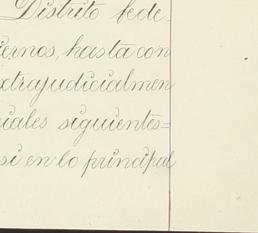 Distrito fede-
iernos, hasta con
xtrajudicialmen
ciales siguientes=
si en lo principal